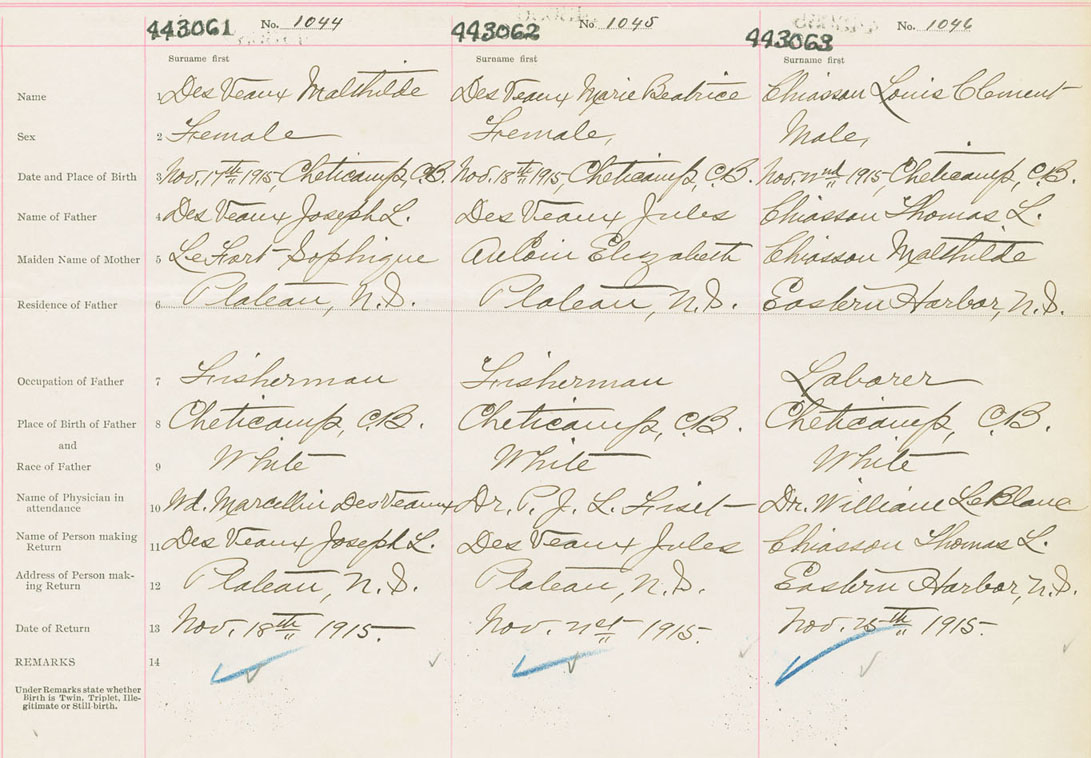 443061 No. 1044 443062 No. 1045 443063 No. 1046
Surname first Surname first Surname first
Name 1 DesVeaux Malthilde DesVeaux Marie Beatrice Chiasson Louis Clement
Sex 2 Female Female, Male,
Date and Place of Birth 3 Nov. 17th 1915, Cheticamp, C.B. Nov. 18th 1915, Cheticamp, C.B. Nov. 22nd 1915, Cheticamp, C.B.
Name of Father 4 DesVeaux Joseph L. DesVeaux Jules Chiasson Thomas L.
Maiden Name of Mother 5 LeFort Sophique AuCoin Elizabeth Chiasson Malthilde
Residence of Father 6 Plateau, N.S. Plateau, N.S. Eastern Harbor, N.S.
Occupation of Father 7 Fisherman Fisherman Laborer
Place of Birth of Father 8 Cheticamp, C.B. Cheticamp, C.B. Cheticamp, C.B.
and
Race of Father 9 White White White
Name of Physician in
attendance 10 Wd. Marcellin DesVeaux Dr. P. J. L. Fiset Dr. William LeBlanc
Name of Person making
Return 11 DesVeaux Joseph L. DesVeaux Jules Chiasson Thomas L.
Address of Person mak-
ing Return 12 Plateau, N.S. Plateau, N.S. Eastern Harbor, N.S.
Date of Return 13 Nov. 18th 1915. Nov. 21st 1915. Nov. 25th 1915.
REMARKS 14
Under Remarks state whether
Birth is Twin, Triplet, Ille-
gitimate or Still-birth.